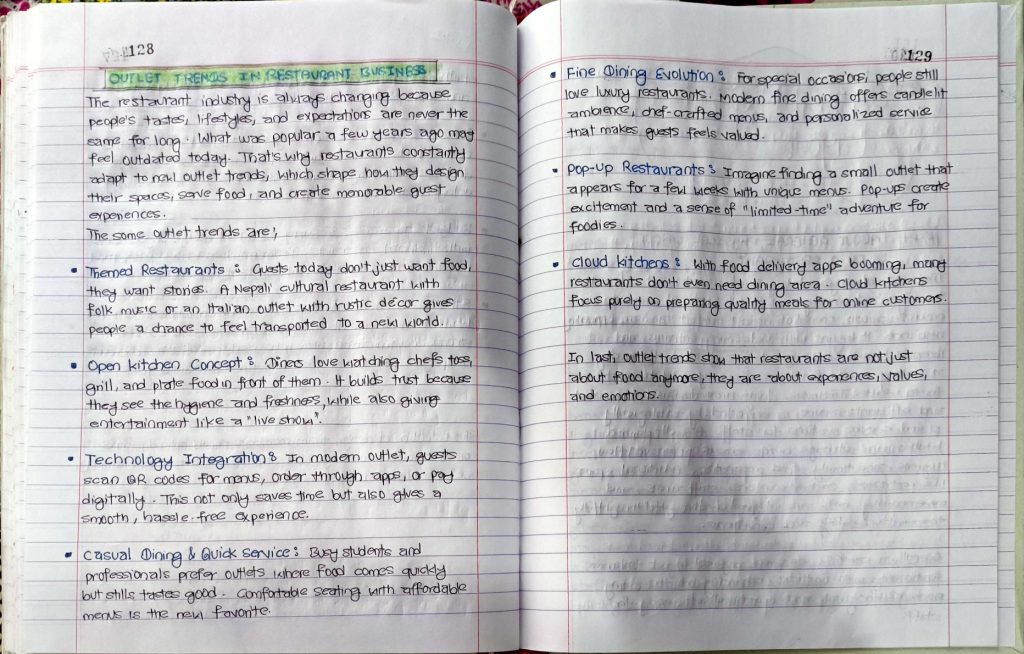 128
OUTLET TRENDS IN RESTAURANT BUSINESS
The restaurant industry is always changing because
people's tastes, lifestyles, and expectations are never the
same for long. What was popular a few years ago may
feel outdated today. That's why restaurants constantly
adapt to new outlet trends, which shape how they design
their spaces, serve food, and create memorable guest
experiences.
The some outlet trends are;
• Themed Restaurants : Guests today don't just want food,
they want stories. A Nepali cultural restaurant with
folk music or an Italian outlet with rustic décor gives
people a chance to feel transported to a new world.
• Open kitchen Concept : Diners love watching chefs toss,
grill, and plate food in front of them. It builds trust because
they see the hygiene and freshness, while also giving
entertainment like a "live show".
• Technology Integration : In modern outlet, guests
scan QR codes for menus, order through apps, or pay
digitally. This not only saves time but also gives a
smooth, hassle-free experience.
• Casual Dining & Quick Service : Busy students and
professionals prefer outlets where food comes quickly
but stills tastes good. Comfortable seating with affordable
menus is the new favorite.
129
• Fine Dining Evolution : For special occasions, people still
love luxury restaurants. Modern fine dining offers candlelit
ambience, chef-crafted menus, and personalized service
that makes guests feels valued.
• Pop-Up Restaurants : Imagine finding a small outlet that
appears for a few weeks with unique menus. Pop-ups create
excitement and a sense of "limited-time" adventure for
foodies.
• Cloud kitchens : With food delivery apps booming, many
restaurants don't even need dining area. Cloud kitchens
focus purely on preparing quality meals for online customers.
In last, outlet trends show that restaurants are not just
about food anymore, they are about experiences, values,
and emotions.